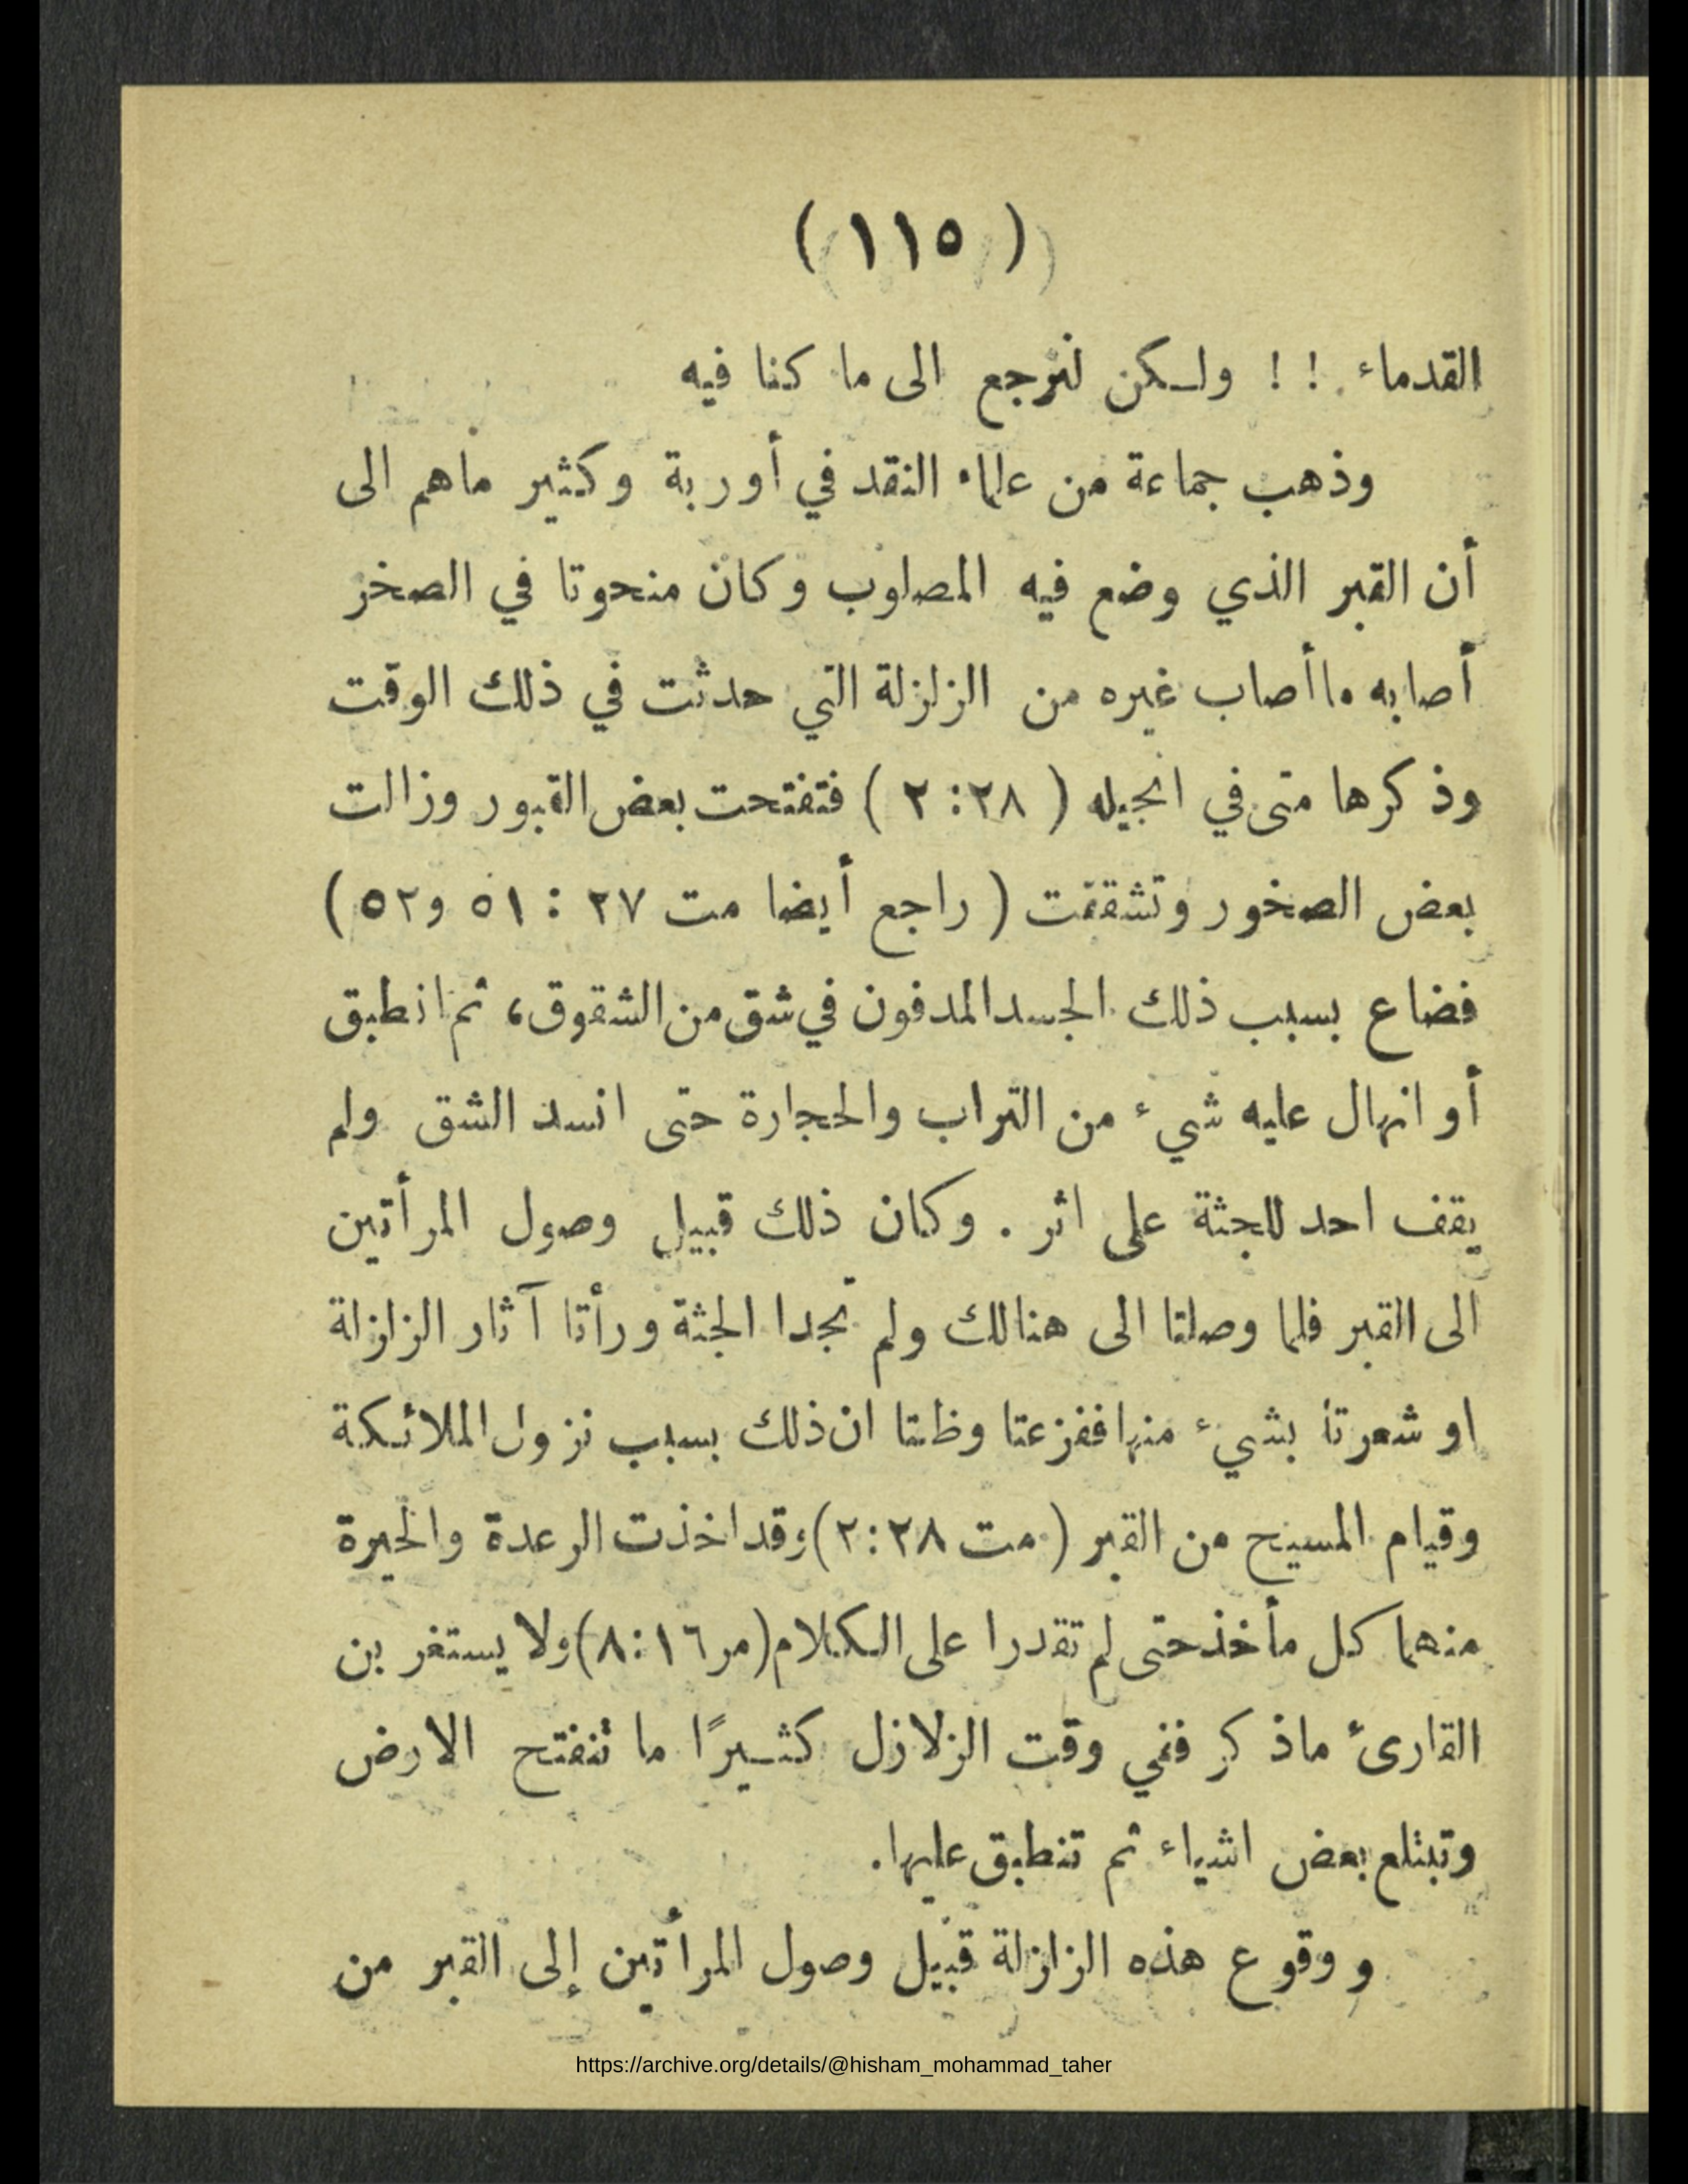 ( ١١٥ )
القدماء ! ! ولـكن لنرجع الى ما كنا فيه
وذهب جماعة من علماء النقد في أوربة وكثير ماهم الى
أن القبر الذي وضع فيه المصلوب وكان منحوتا في الصخر
أصابه ماأصاب غيره من الزلزلة التي حدثت في ذلك الوقت
وذكرها متى في انجيله ( ٢٨: ٢ ) فتفتحت بعض القبور وزالت
بعض الصخور وتشققت ( راجع أيضا مت ٢٧ : ٥١ و٥٢ )
فضاع بسبب ذلك الجسد المدفون في شق من الشقوق، ثم انطبق
أو انهال عليه شيء من التراب والحجارة حتى انسد الشق ولم
يقف احد للجثة على اثر . وكان ذلك قبيل وصول المرأتين
الى القبر فلما وصلتا الى هنالك ولم تجدا الجثة ورأتا آثار الزلزلة
او شعرتا بشيء منها ففزعتا وظنتا ان ذلك بسبب نزول الملائـكة
وقيام المسيح من القبر ( مت ٢٨: ٢) وقد اخذت الرعدة والحيرة
منهما كل مأخذ حتى لم تقدرا على الـكلام (مر ١٦: ٨) ولا يستغربن
القارئ ماذكر ففي وقت الزلازل كثـيرًا ما تنفتح الارض
وتبتلع بعض اشياء ثم تنطبق عليها.
ووقوع هذه الزلزلة قبيل وصول المرأتين إلى القبر من
https://archive.org/details/@hisham_mohammad_taher